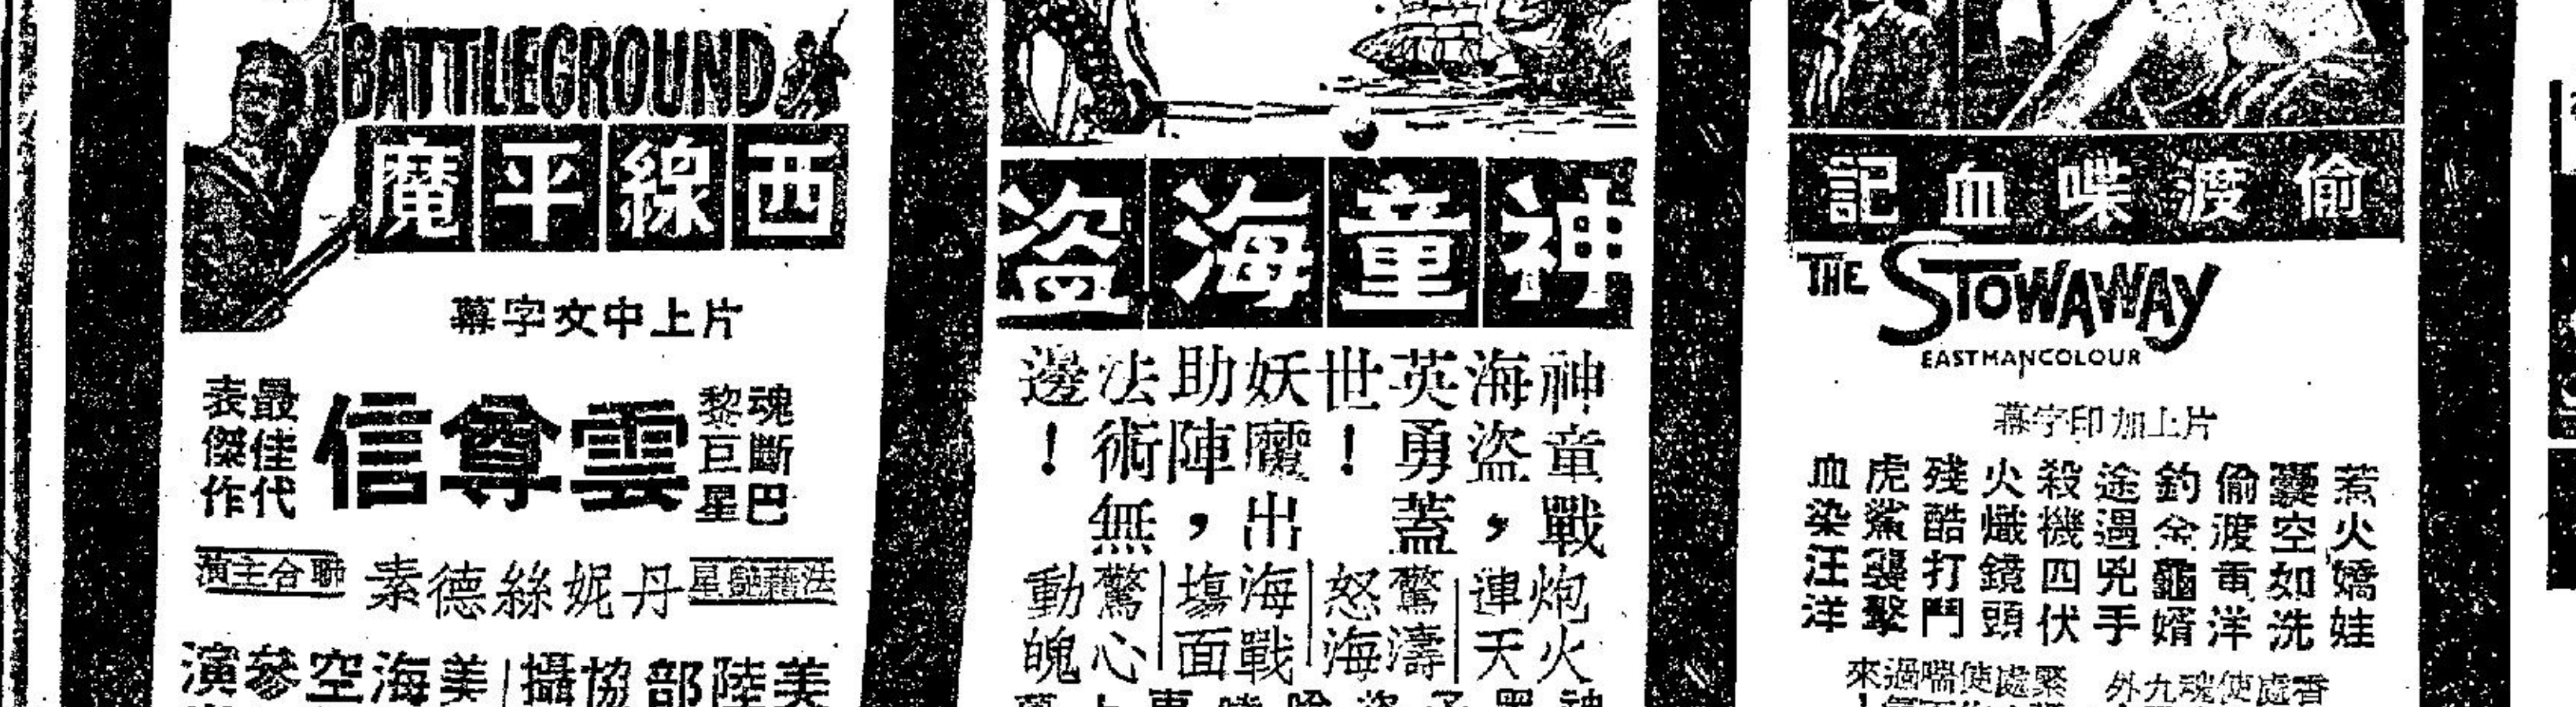 BATTLEGROUND
西線平魔
片上中文字幕
魂斷巴
黎巨星
雲尊信
最佳代
表傑作
法籍艷星 丹妮絲德素 聯合主演
美陸部協攝|美海空參演
神童海盜
神童戰
海盜,
英勇蓋
世!
妖魔出
助陣,
法術無
邊!
炮火
連天
驚濤
怒海
海戰
塲面
驚心
動魄
偷渡喋血記
THE STOWAWAY
EASTMANCOLOUR
片上加印字幕
惹火嬌娃
囊空如洗
偷渡重洋
釣金龜婿
途遇兇手
殺機四伏
火熾鏡頭
殘酷打鬥
虎鯊襲擊
血染汪洋
香處使魂九外
緊處使喘過來